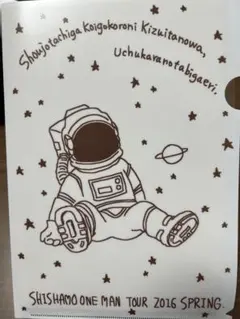 Shoujotachiga Koigokoroni Kizuitanowa,
Uchukaranotabigaeri.
SHISHAMO ONE MAN TOUR 2016 SPRING.